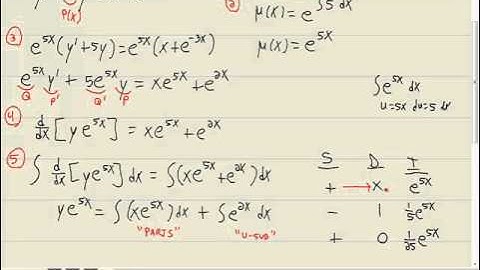 P(x)
② μ(x) = e^∫5 dx
③ e^5x (y' + 5y) = e^5x (x + e^-3x)
μ(x) = e^5x
e^5x y' + 5e^5x y = xe^5x + e^2x
Q P' Q' P
∫e^5x dx
u=5x du=5 dx
④ d/dx [y e^5x] = xe^5x + e^2x
⑤ ∫ d/dx [ye^5x] dx = ∫(xe^5x + e^2x) dx
ye^5x = ∫(xe^5x) dx + ∫e^2x dx
"PARTS" "U-SUB"
S D I
+ → x e^5x
- 1 1/5 e^5x
+ 0 1/25 e^5x